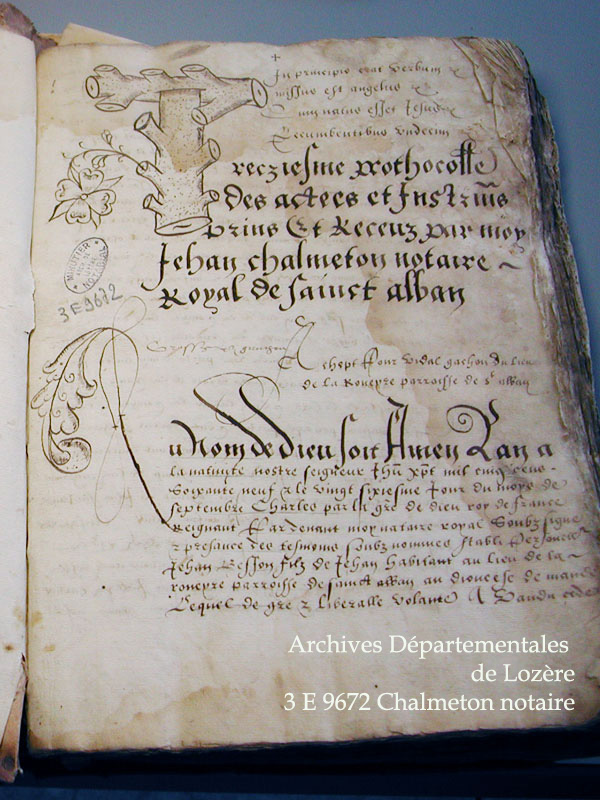 In principio erat verbum
missus est angelus
Cum natus esset Jesus
Recumbentibus undecim
Treiziesme prothocolle
des actees et Instrumens
prins Et Receuz par moy
Jehan chalmeton notaire
Royal de sainct alban
3 E 9672
Achept pour vidal gachon du lieu
de la Roueyre parroisse de st alban
Au Nom de Dieu soit Amen Lan a
la nativite nostre seigneur Jhu xpt mil cinq cens
Soixante neuf & le vingt sixiesme Jour du moys de
septembre Charles par la gre de dieu roy de france
Reignant Pardevant moy notaire royal Soubz signe
& presance des tesmoins soubz nommes stabli Personel
Jehan Besson filz de Jehan habitant au lieu de la
roueyre parroisse de sainct alban au dioceese de mande
Lequel de gre & liberalle volante A Vandu cede
Archives Départementales
de Lozère
3 E 9672 Chalmeton notaire